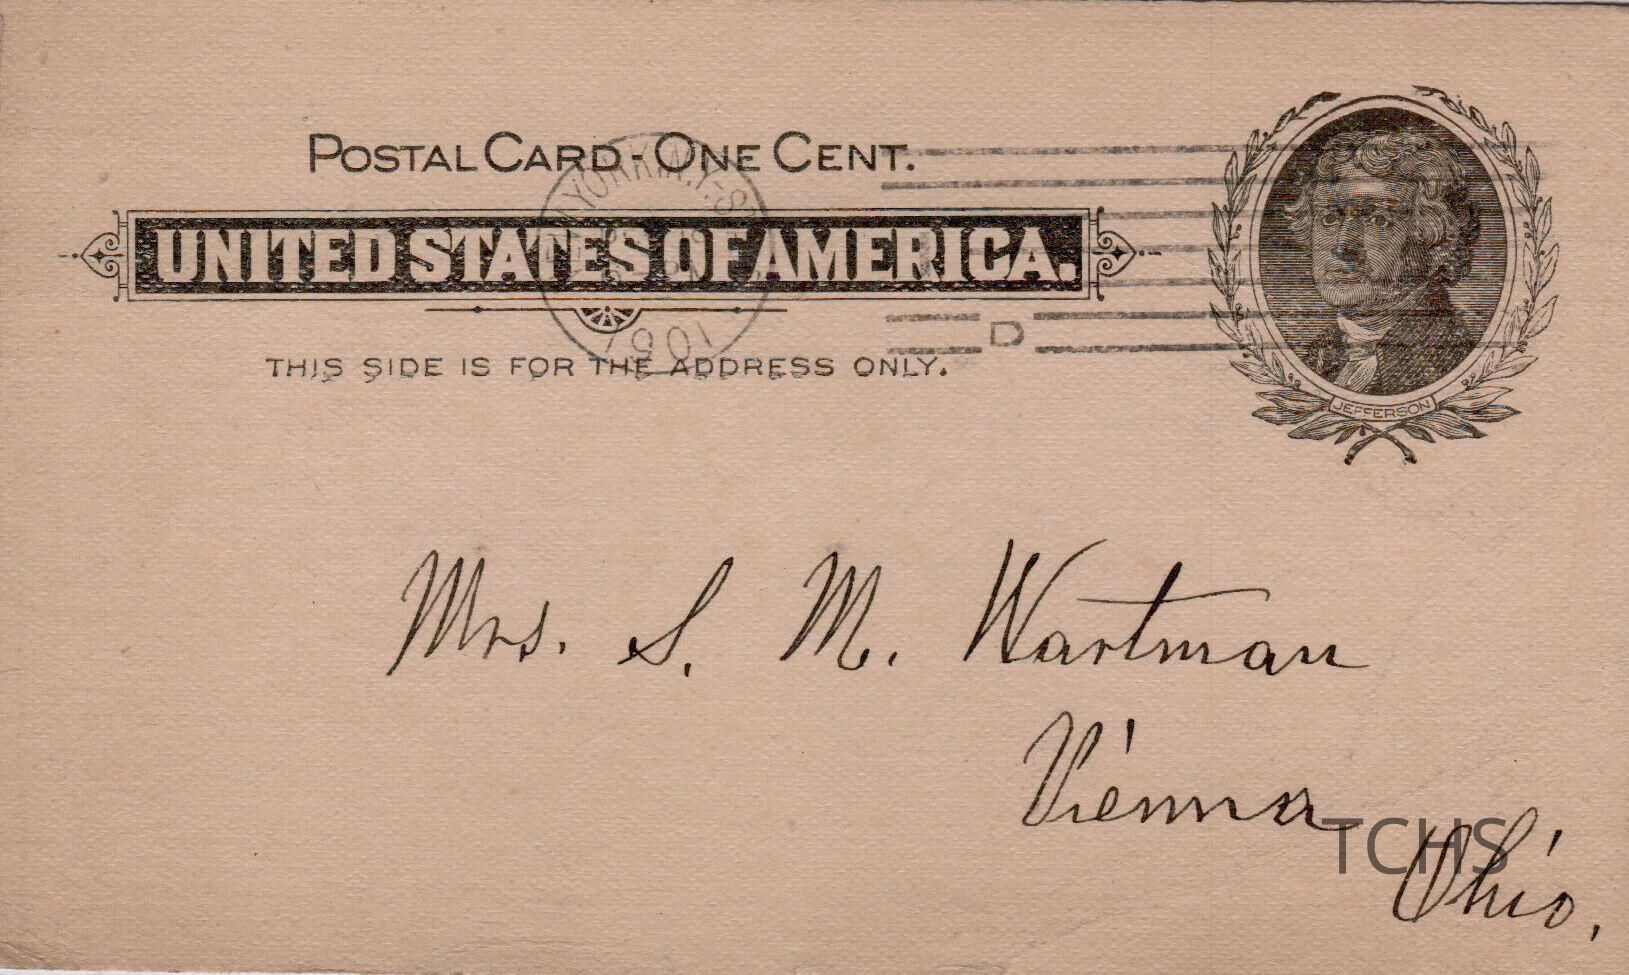 POSTAL CARD - ONE CENT.
YORK, N.Y.-S
UNITED STATES OF AMERICA.
1901
D
THIS SIDE IS FOR THE ADDRESS ONLY.
JEFFERSON
Mrs. S. M. Wartman
Vienna
TCHS
Ohio.